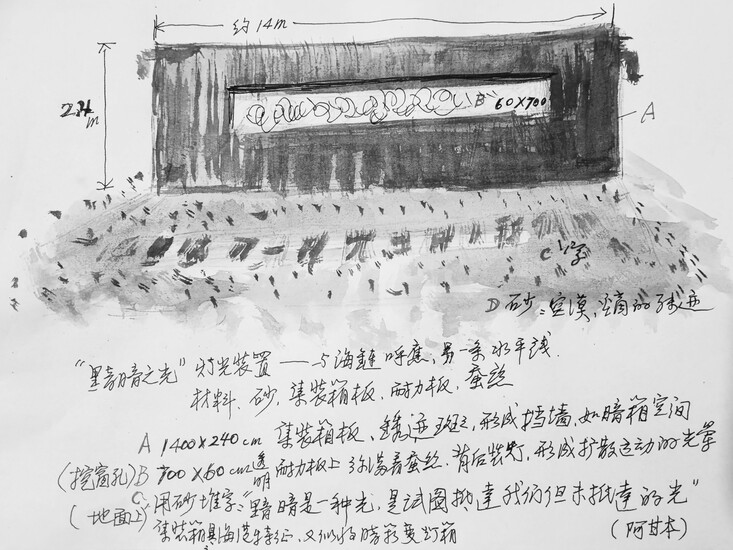 约14m
2.4m
B 60X700
A
C 字
D 砂=空漠、熵的踪迹
“黑暗之光”灯光装置——与海鲢呼应,另一条水平线.
材料、砂,集装箱板,耐力板,蚕丝
A 1400×240cm 集装箱板、锈迹斑斑,形成挡墙,如暗箱空间
(挖窗孔)B 700×60cm透明耐力板上 满着蚕丝.背后装灯,形成扩散运动的光晕
(地面上)C 用砂堆字:“黑暗是一种光,是试图抵达我们但未抵达的光”
集装箱具海港特征,又似的暗影变灯箱
(阿甘本)